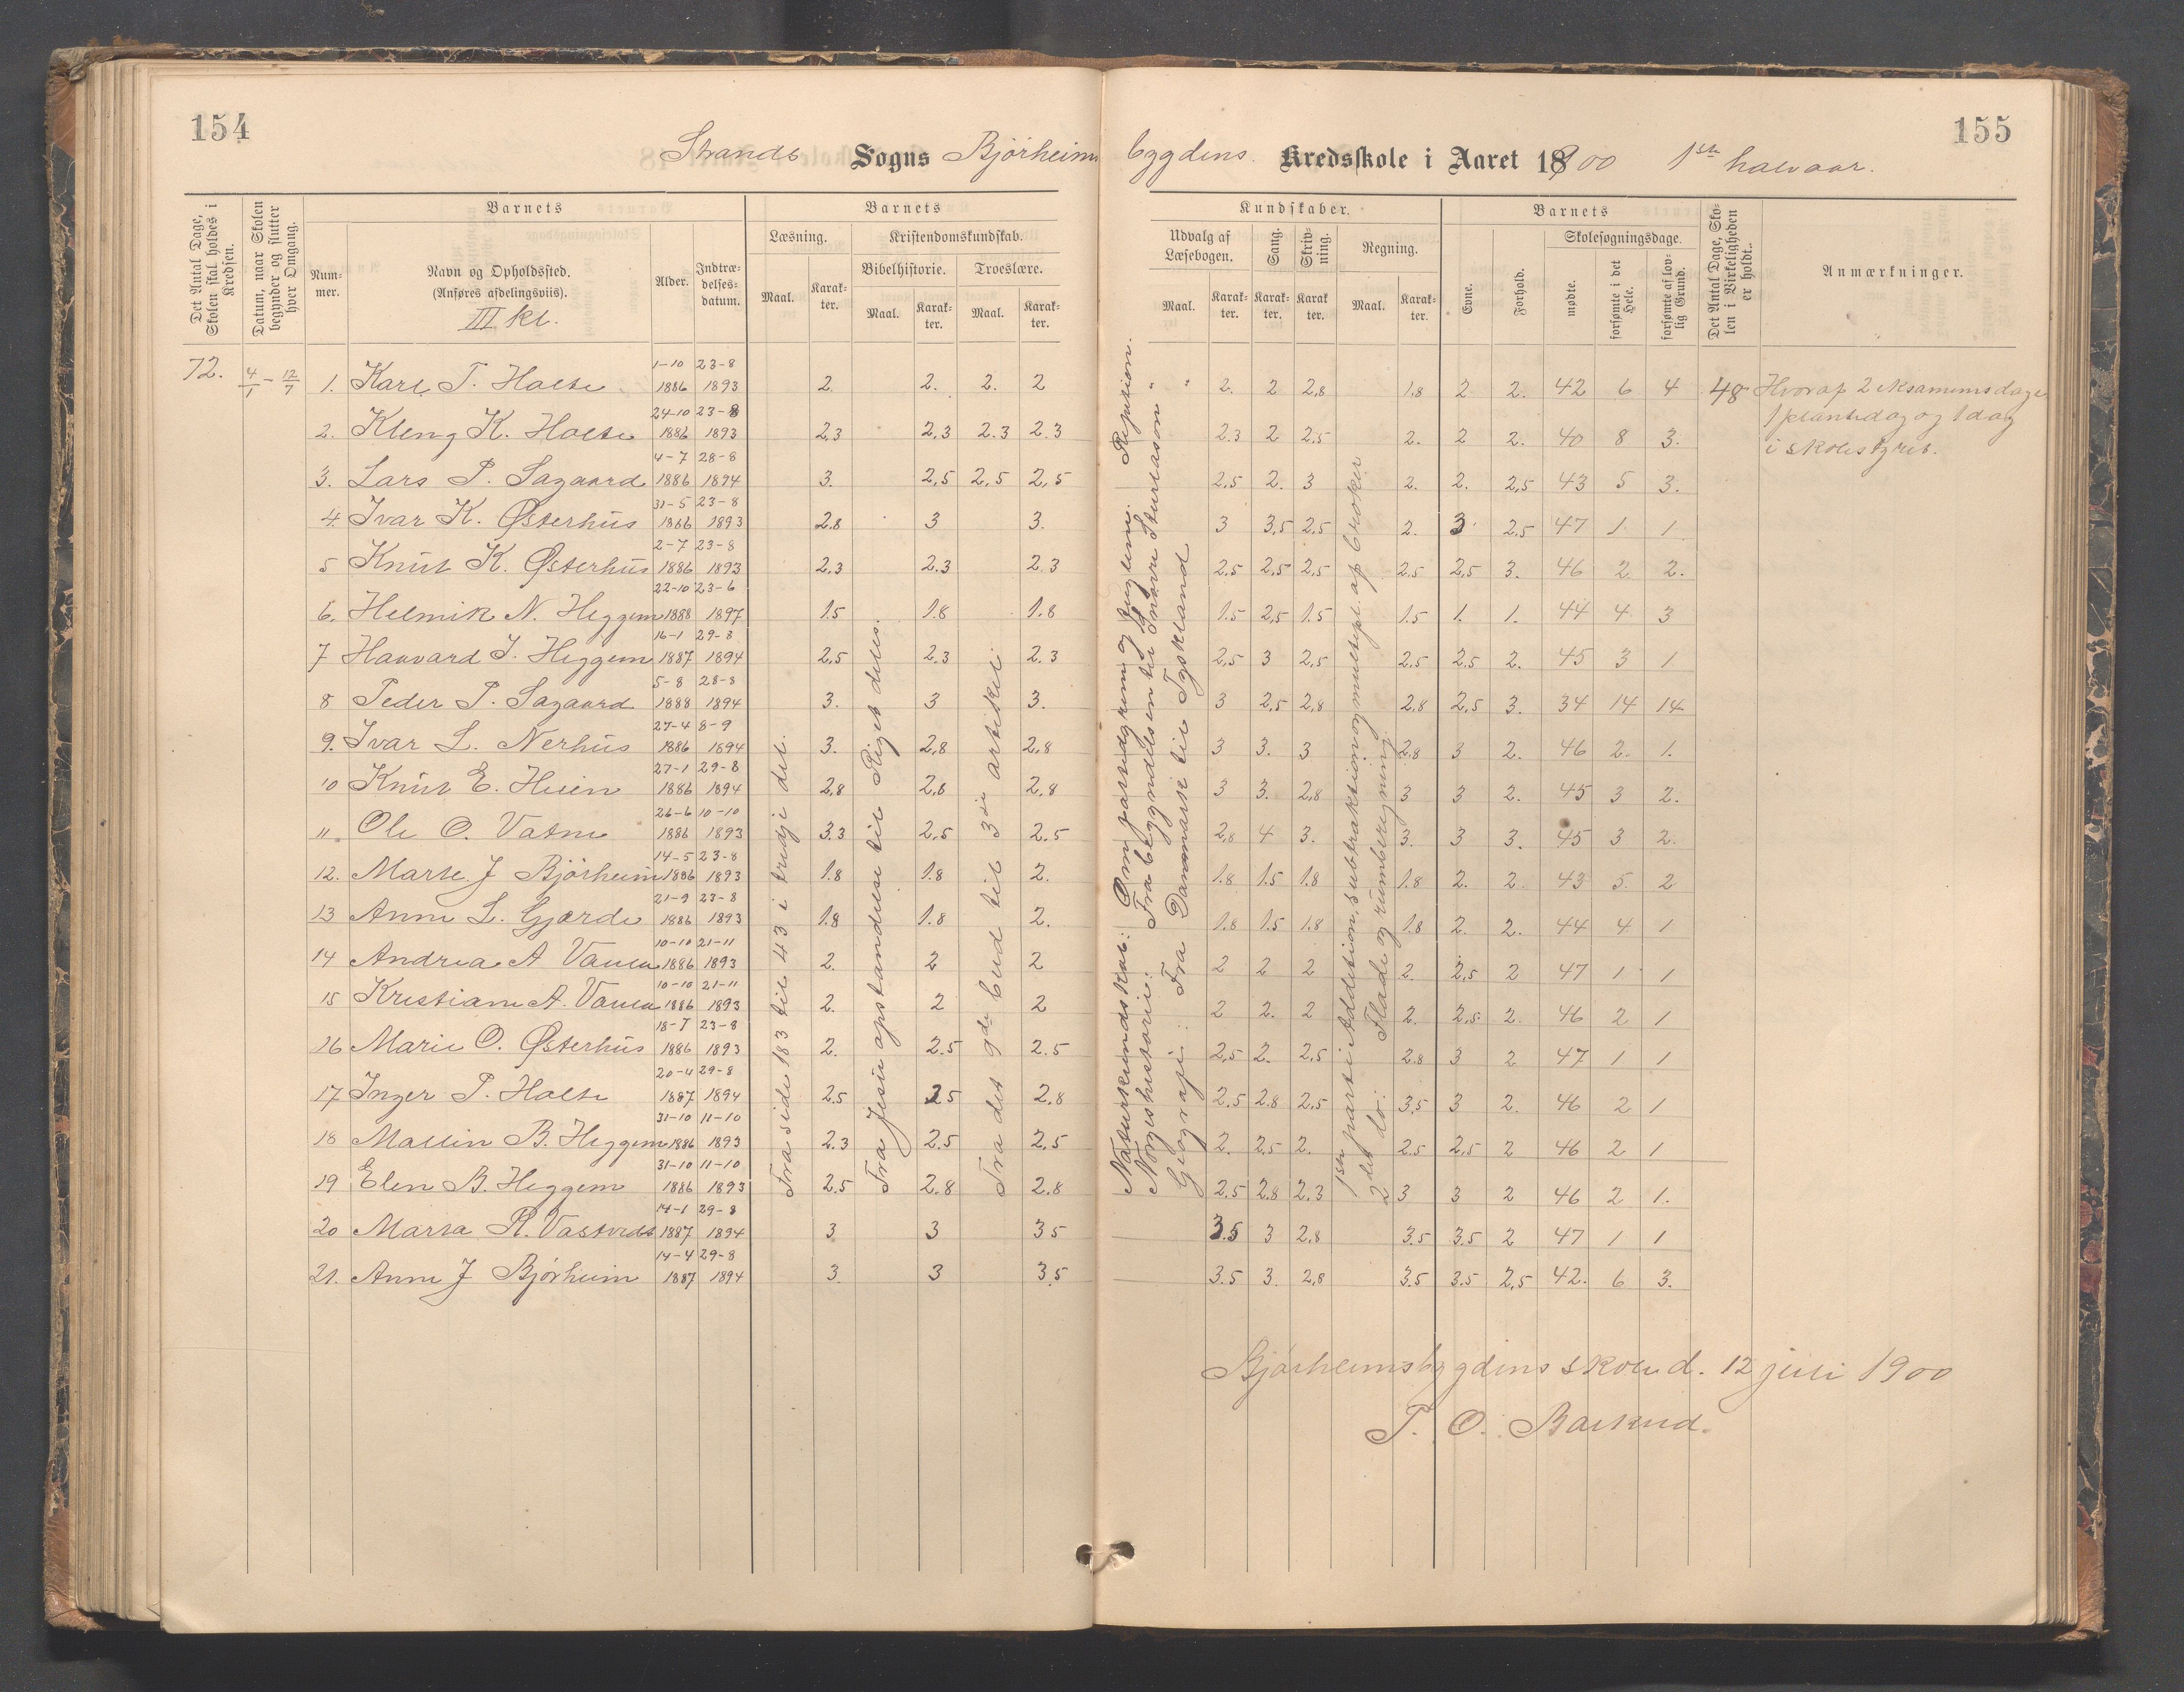 154
155
Strands Sogns Bjørheims bygdens Kredsskole i Aaret 1900 1ste halvaar.
Det Antal Dage, Skolen skal holdes i Kredsen.
Datum, naar Skolen begynder og slutter hver Omgang.
Barnets
Num-mer.
Navn og Opholdssted.
(Anføres afdelingsviis).
III kl.
Alder.
Indtræ-delses-datum.
Barnets
Læsning.
Maal.
Karak-ter.
Kristendomskundskab.
Bibelhistorie.
Maal.
Karak-ter.
Troeslære.
Maal.
Karak-ter.
Kundskaber.
Udvalg af Læsebogen.
Maal.
Karak-ter.
Sang.
Karak-ter.
Skriv-ning.
Karak ter.
Regning.
Maal.
Karak-ter.
Barnets
Evne.
Forhold.
Skolesøgningsdage.
mødte.
forsømte i det Hele.
forsømte af lov-lig Grund.
Det Antal Dage, Sko-len i Virkeligheden er holdt.
Anmærkninger.
72. 4/1 – 12/7 1. Karl T. Holte 1-10 1886 23-8 1893 2. 2. 2. 2 2. 2 2,8 1.8 2 2. 42 6 4 48 Hvoraf 2 eksamensdage
1 plantedag og 1 dag
i skolestyret.
2. Kleng K. Holte 24-10 1886 23-8 1893 2,3 2,3 2.3 2.3 2.3 2 2,5 2. 2 2. 40 8 3.
3. Lars P. Sagaard 4-7 1886 28-8 1894 3. 2,5 2,5 2,5 2,5 2. 3 2. 2. 2,5 43 5 3.
4. Ivar K. Østerhus 31-5 1886 23-8 1893 2,8 3 3. 3 3,5 2,5 2. 3 2.5 47 1. 1
5 Knut K. Østerhus 2-7 1886 23-8 1893 2,3 2.3 2.3 2,5 2,5 2,5 2,5 2,5 3. 46 2 2.
6. Helmik N. Heggem 22-10 1888 23-6 1897 1.5 1.8 1.8 1.5 2,5 1.5 1.5 1. 1. 44 4 3
7 Haavard J. Heggem 16-1 1887 29-8 1894 2,5 2.3 2.3 2,5 3 2,5 2,5 2,5 2. 45 3 1
8 Peder P. Sagaard 5-8 1888 28-8 1894 3. 3 3. 3 2,5 2,8 2.8 2,5 3. 34 14 14
9. Ivar L. Nerhus 27-4 1886 8-9 1894 3. 2,8 2,8 3 3. 3 2.8 3 2. 46 2. 1.
10 Knut E. Heien 27-1 1886 29-8 1894 2,8 2,8 2,8 3 3. 2,8 3 3 2. 45 3 2.
11. Ole O. Vatne 26-6 1886 10-10 1893 3.3 2,5 2.5 2,8 4 3. 3. 3 3. 45 3 2.
12. Marte J Bjørheim 14-5 1886 23-8 1893 1.8 1.8 2. 1.8 1.5 1.8 1.8 2. 2 43 5. 2
13 Anne L. Gjærde 21-9 1886 23-8 1893 1.8 1.8 2. 1.8 1.5 1.8 1.8 2. 2. 44 4 1
14 Andrea A 10-10 1886 21-11 1893 2. 2 2 2 2 2 2. 2,5 2 47 1 1
15 Kristiane A. 10-10 1886 21-11 1893 2. 2 2 2 2. 2 2. 2,5 2. 46 2 1
16 Marie O. Østerhus 18-7 1886 23-8 1893 2. 2.5 2.5 2,5 2. 2,5 2.8 3 2 47 1 1
17 Inger P. Holte 20-4 1887 29-8 1894 2.5 2.5 2.8 2,5 2.8 2,5 3,5 3 2. 46 2 1
18 Mallin B. Heggem 31-10 1886 11-10 1893 2.3 2.5 2,5 2. 2,5 2. 2.5 2,5 2 46 2 1
19 Elen B. Heggem 31-10 1886 11-10 1893 2.5 2.8 2.8 2.5 2.8 2.3 3 3 2 46 2 1.
20 Marta R. Vastveit 14-1 1887 29-8 1894 3 3 3 5 3.5 3 2.8 3.5 3.5 2 47 1 1
21. Anne J Bjørheim 14-4 1887 29-8 1894 3. 3 3,5 3.5 3. 2,8 3.5 3.5 2,5 42. 6 3.
Fra side 183 til 43 i tredje del.
Fra Jesu opstandelse til Riget deles.
Fra det 9de bud til 3die artikel.
Naturkundskab: Om pattedyrene og fuglene. Repetition.
Norgeshistorie: Fra begyndelsen til Snorre Sturlason " "
Geografi: Fra Danmark til Tyskland
1ste parti: Addition, subtraktion og multipl. af brøker
2det do: Flade og rumberegning.
Bjørheimsbygdens skole d. 12 juli 1900
T. O. Barkved.